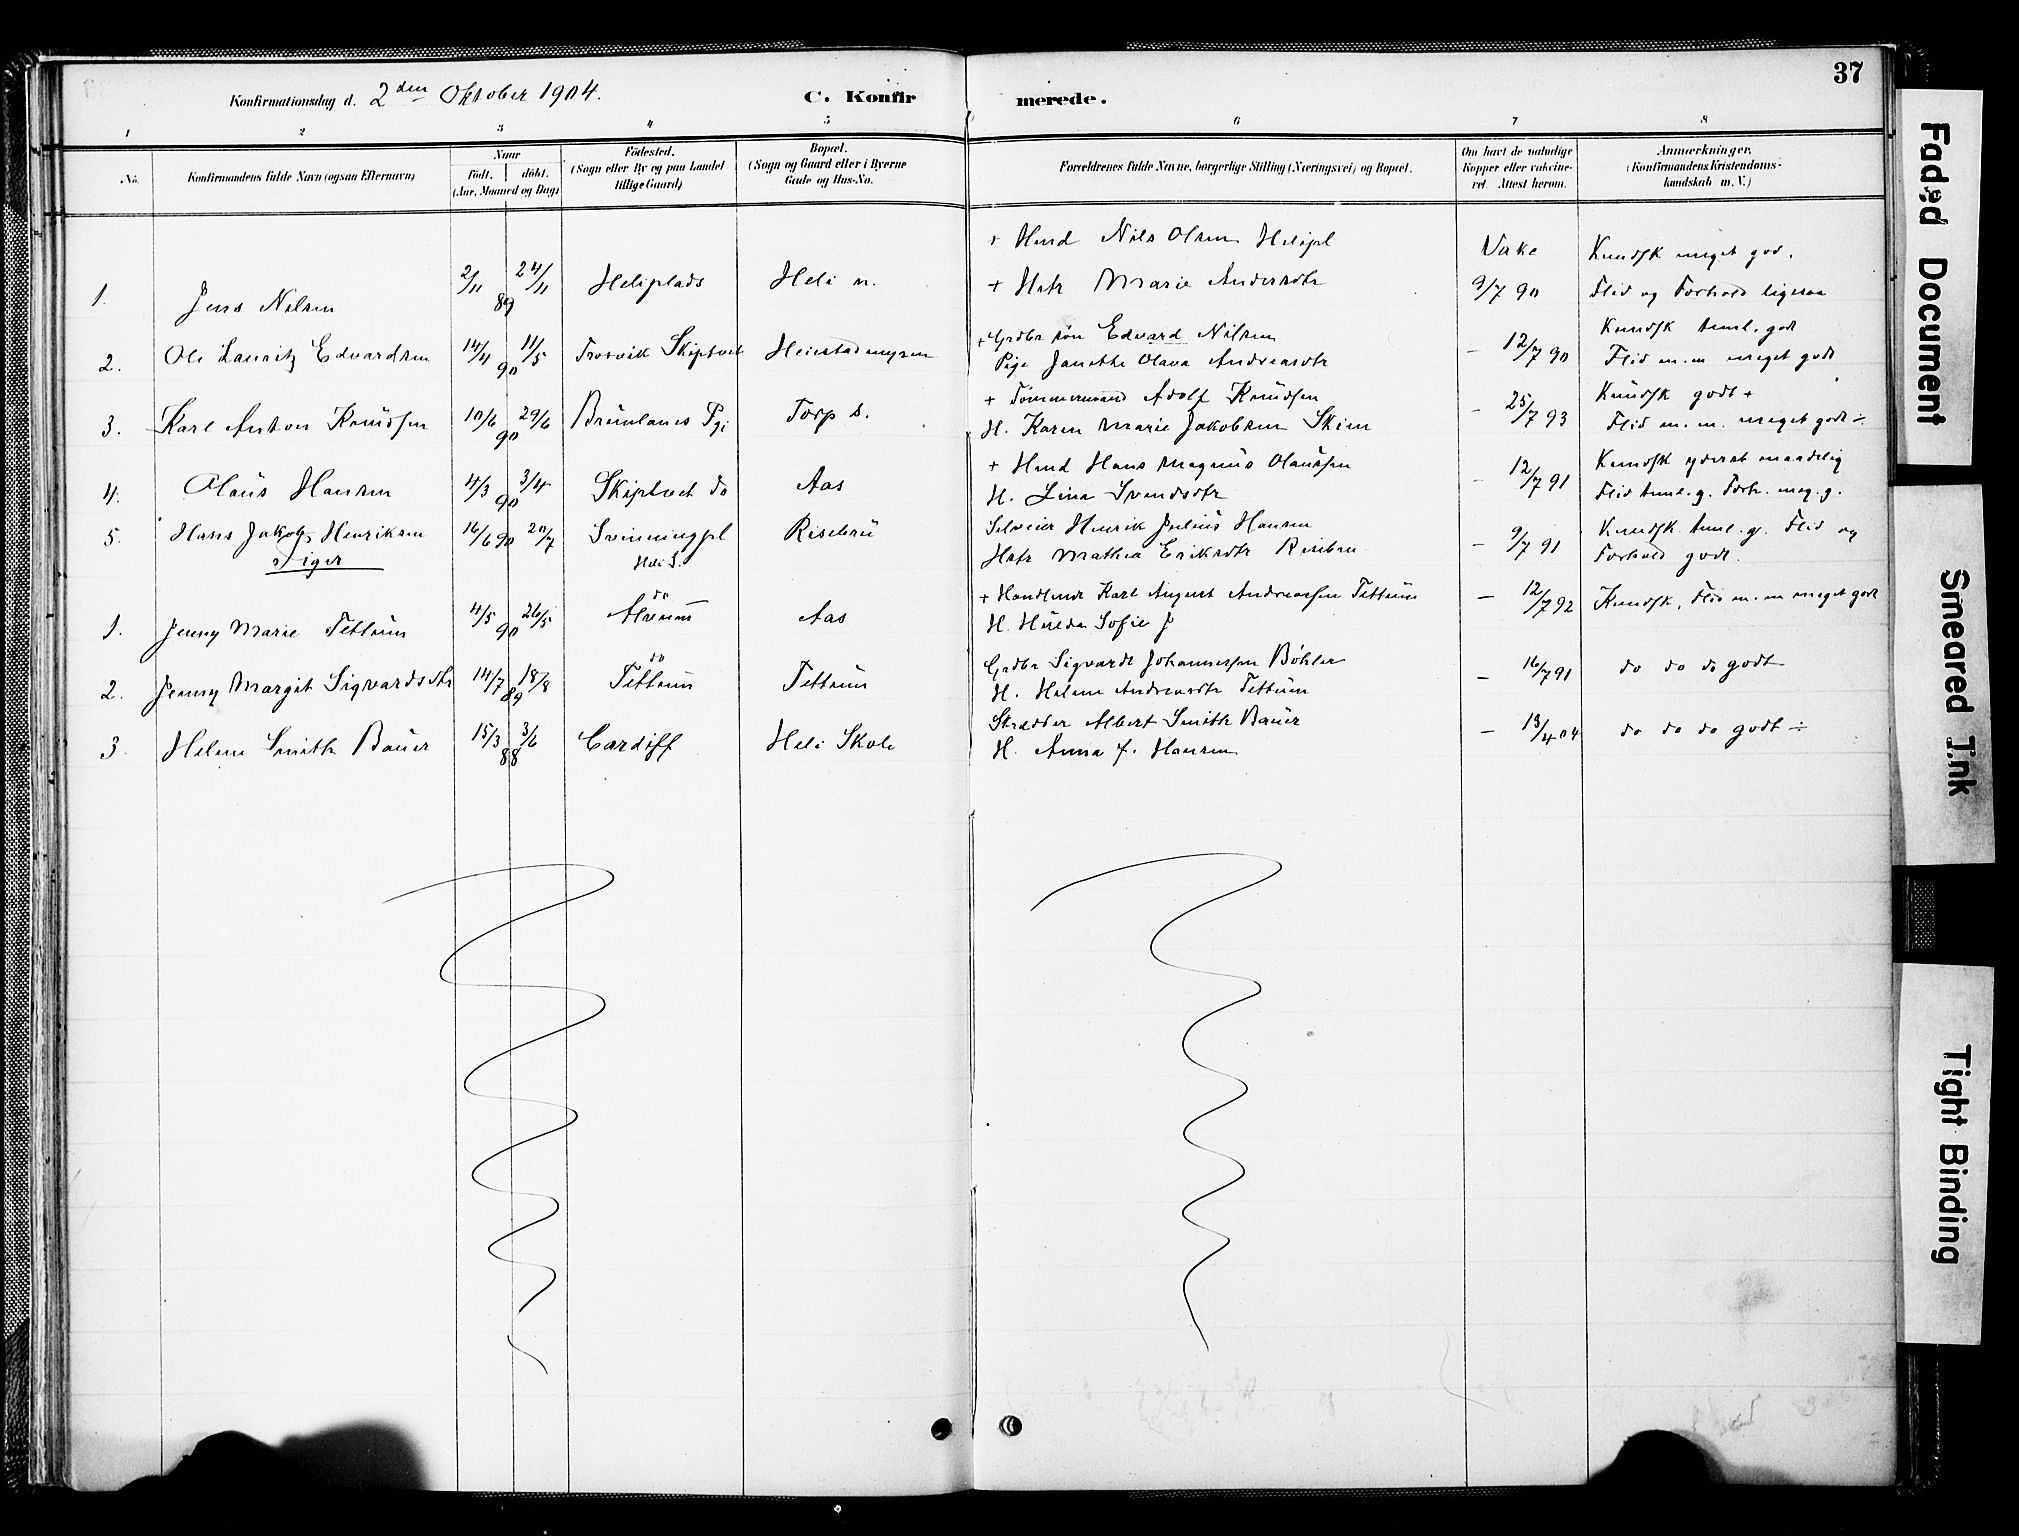 37
Konfirmationsdag d. 2den Oktober 1904.
C. Konfirmerede.
1 2 3 4 5 6 7 8
No.
Konfirmandens fulde Navn (ogsaa Efternavn)
Naar
født. døbt.
(Aar, Maaned og Dag)
Fødested.
(Sogn eller By og paa Landet
tillige Gaard)
Bopæl.
(Sogn og Gaard eller i Byerne
Gade og Hus-No.
Forældrenes fulde Navne, borgerlige Stilling (Næringsvei) og Bopæl.
Om havt de naturlige
Kopper eller vakcine-
ret. Attest herom.
Anmærkninger.
(Konfirmandens Kristendoms-
kundskab m. V.)
1. Jens Nilsen 2/11 24/11 89 Heliplads Heli n.
+ Hmd Nils Olsen Helipl
+ Hstr Marie Andersdtr
Vake
9/7 90
Kundsk meget god.
Flid og Forhold ligesaa
2. Ole Lauritz Edvardsen 14/4 11/5 90 Trosvik Skiptvet Heiestadmyren
+ Grdbr søn Edvard Nilsen
Pige Janette Olava Andreasdtr
– 12/7 90
Kundsk teml. godt
Flid m.m meget godt
3. Karl Anton Knudsen 10/6 29/6 90 Brunlanes Pgj Torp s.
+ Tømmermand Adolf Knudsen
H. Karen Marie Jakobsen Skien
– 25/7 93
Kundsk godt +
Flid m. m. meget godt ÷
4. Olaus Hansen 4/3 3/4 90 Skiptvet do Aas
+ Hmd Hans Magnus Olaussen
H. Lina Svendsdtr
– 12/7 91
Kundsk yderst maadelig
Flid teml. g. Forh. meg. g.
5. Hans Jakob Henriksen 16/6 90 20/7 Svinningpl Heli S. Risebru
Selveier Henrik Julius Hansen
Hstr Mathea Eriksdtr Risebru
– 9/7 91
Kundsk teml. g. Flid og
Forhold godt.
Piger
1. Jenny Marie Tettum 4/5 26/5 90 do Aas
+ Handlende Karl August Andreassen Tettum
H. Hulda Sofie J
– 12/7 92
Kundsk, Flid m. m meget godt
2. Jenny Margit Sigvardsdtr 14/7 18/8 89 do Tettum Tettum
Grdbr Sigvardt Johannessen Bøhler
H. Helene Andreasdtr Tettum
– 16/7 91
do do do godt
3. Helene Smith Bauer 15/3 3/6 88 Cardiff Heli Skole
Skrædder Albert Smith Bauer
H. Anna f. Hansen
– 13/4 04
do do do godt ÷
Faded Document
Smeared Ink
Tight Binding